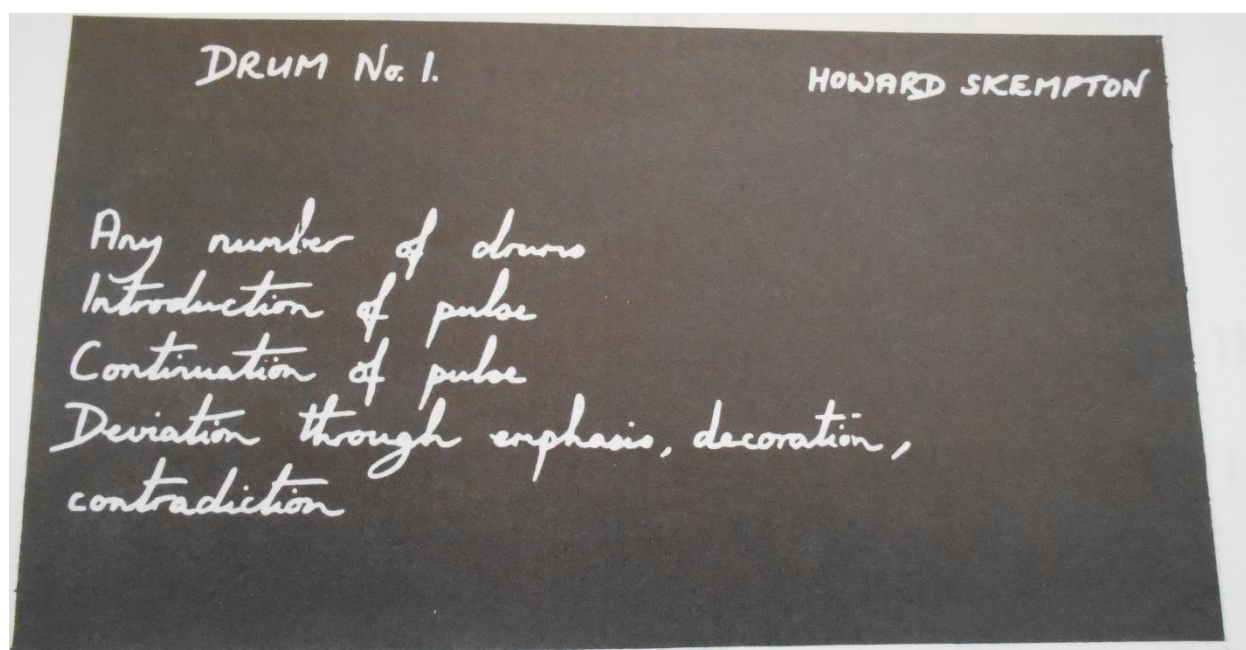 DRUM No. 1.
HOWARD SKEMPTON
Any number of drums
Introduction of pulse
Continuation of pulse
Deviation through emphasis, decoration,
contradiction